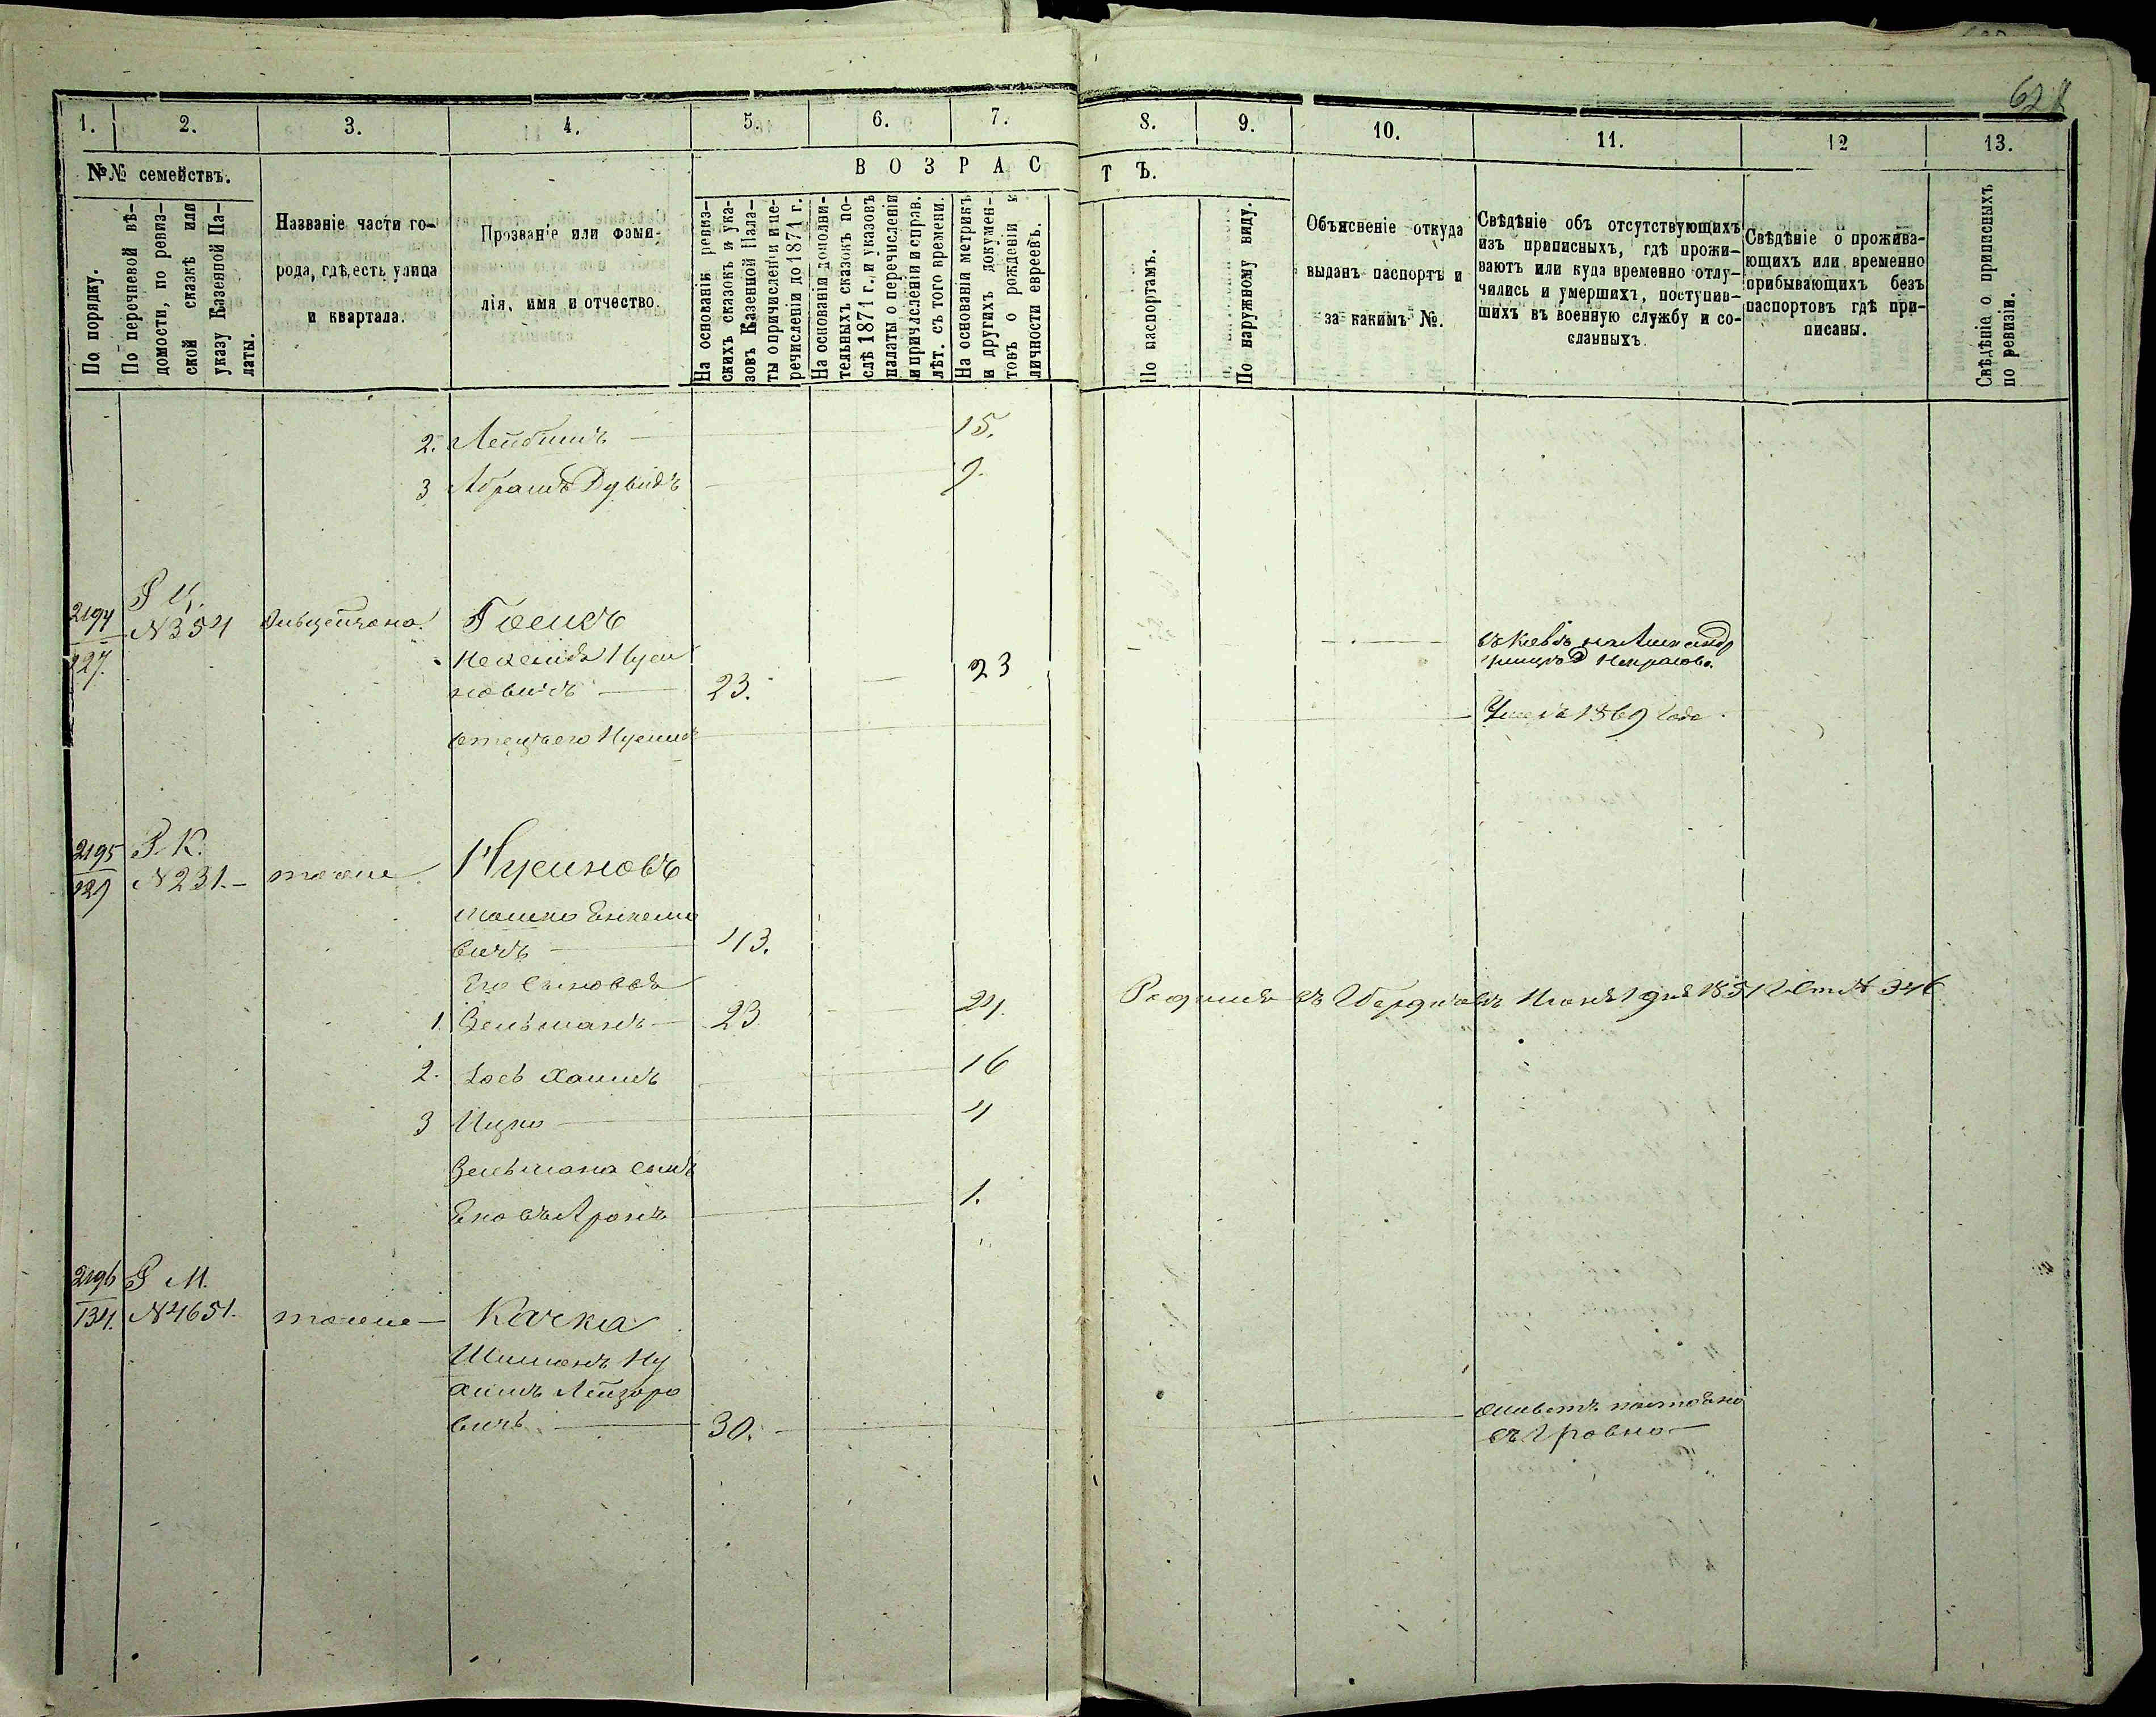 628
1. 2. 3. 4. 5. 6. 7. 8. 9. 10. 11. 12 13.
№№ семействъ.
По порядку.
По перечневой вѣ-
домости, по ревиз-
ской сказкѣ или
указу Казенной Па-
латы.
Названіе части го-
рода, гдѣ есть улица
и квартала.
Прозваніе или фами-
лія, имя и отчество.
ВОЗРАСТЪ.
На основаніи ревиз-
скихъ сказокъ и ука-
зовъ Казенной Пала-
ты о причисленіи и пе-
речисленіи до 1871 г.
На основаніи дополни-
тельныхъ сказокъ по-
слѣ 1871 г. и указовъ
палаты о перечисленіи
и причисленіи и справ.
лѣт. съ того времени.
На основаніи метрикъ
и другихъ докумен-
товъ о рожденіи и
личности евреевъ.
По паспортамъ.
По наружному виду.
Объясненіе откуда
выданъ паспортъ и
за какимъ №.
Свѣдѣніе объ отсутствующихъ
изъ приписныхъ, гдѣ прожи-
ваютъ или куда временно отлу-
чились и умершихъ, поступив-
шихъ въ военную службу и со-
сланныхъ.
Свѣдѣніе о прожива-
ющихъ или временно
прибывающихъ безъ
паспортовъ гдѣ при-
писаны.
Свѣдѣніа о приписныхъ
по ревизіи.
2. Лейбишъ 15.
3 Абрамъ Дувидъ 9.
2194
127. №354
Нуси
новичъ 23. 23
отецъ его Нусинъ Умеръ 1869 года
2195 Р. К.
129 №231. тоже Нусиновъ
Мошко
вичъ 43.
Его сыновья
1. Зельманъ 23 24. Родился въ Бердичевѣ
2. Іось Хаимъ 16
3 Ицко 4
Зельмана сынъ
Аронъ 1.
2196 Р М.
134. №4651. тоже Качка
Шимонъ Ну
химъ Лейзоро
вичъ 30. живетъ